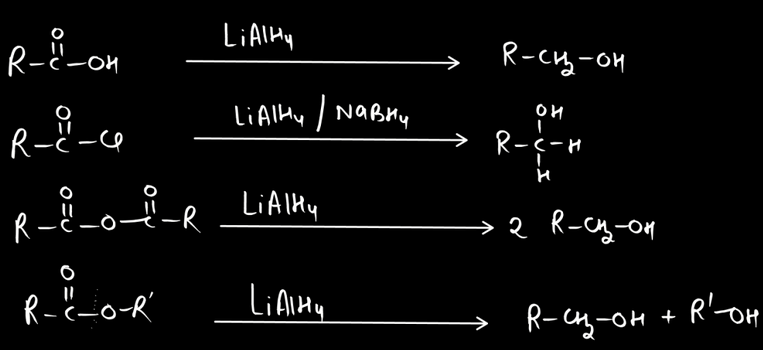 R-C(=O)-OH LiAlH4 → R-CH2-OH
R-C(=O)-Cl LiAlH4 / NaBH4 → R-C(OH)(H)-H
R-C(=O)-O-C(=O)-R LiAlH4 → 2 R-CH2-OH
R-C(=O)-O-R' LiAlH4 → R-CH2-OH + R'-OH